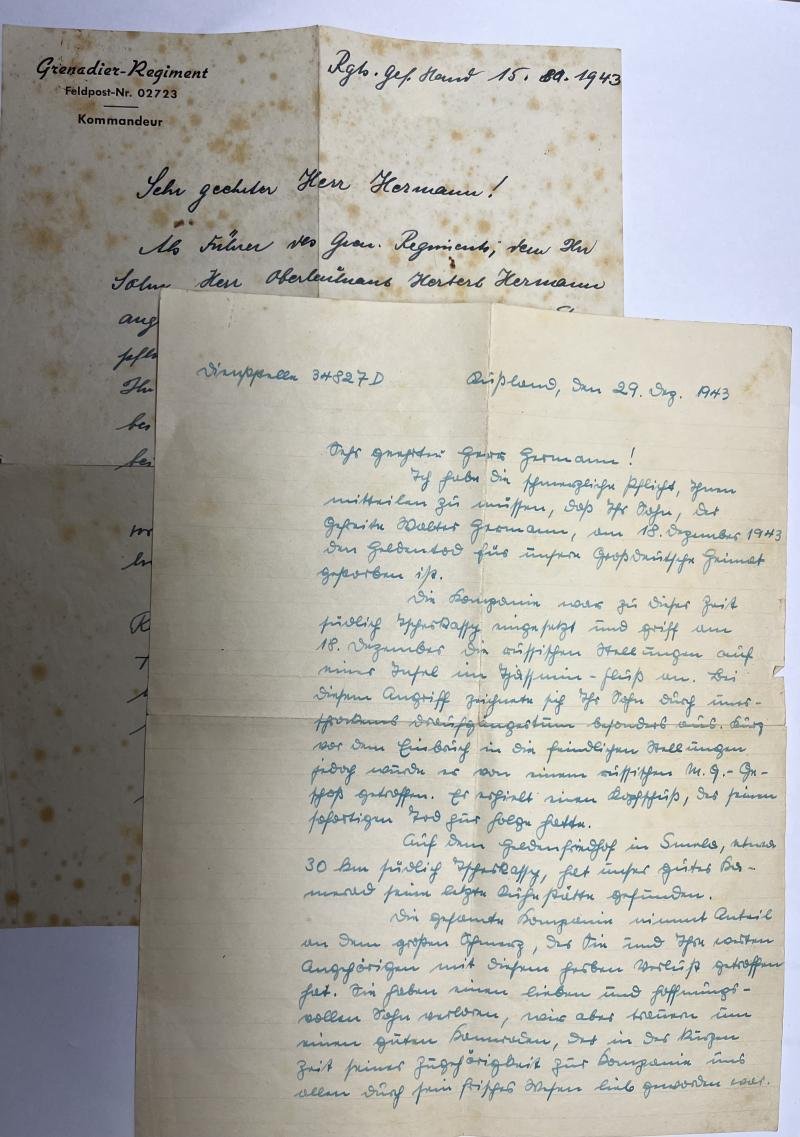 Grenadier-Regiment
Feldpost-Nr. 02723
Kommandeur
Rgts. gef. Stand 15. 1943
Sehr geehrter Herr Hermann!
Als Führer des Gren. Regiments, dem Ihr
Sohn Herr Oberleutnant Herbert Hermann
ang
pfl
Ihr
bei
bei
Dienststelle 34827D
Rußland, den 29. Dez. 1943
Sehr geehrter Herr Hermann!
Ich habe die schmerzliche Pflicht, Ihnen
mitteilen zu müssen, daß Ihr Sohn, der
Gefreite Walter Hermann, am 18. Dezember 1943
den Heldentod für unsere Großdeutsche Heimat
gestorben ist.
Die Kompanie war zu dieser Zeit
südlich Tscherkassy eingesetzt und griff am
18. Dezember die russischen Stellungen auf
einer Insel im Tjassmin-Fluß an. Bei
diesem Angriff zeichnete sich Ihr Sohn durch uner-
schrockenes Draufgängertum besonders aus. Kurz
vor dem Einbruch in die feindlichen Stellungen
jedoch wurde er von einem russischen M.G.-Ge-
schoß getroffen. Er erhielt einen Kopfschuß, der seinen
sofortigen Tod zur Folge hatte.
Auf dem Heldenfriedhof in Smela, etwa
30 km südlich Tscherkassy, hat unser guter Ka-
merad seine letzte Ruhestätte gefunden.
Die gesamte Kompanie nimmt Anteil
an dem großen Schmerz, der Sie und Ihre werten
Angehörigen mit diesem herben Verlust getroffen
hat. Sie haben einen lieben und hoffnungs-
vollen Sohn verloren, wir aber trauern um
einen guten Kameraden, der in der kurzen
Zeit seiner Zugehörigkeit zur Kompanie uns
allen durch sein frisches Wesen lieb geworden war.